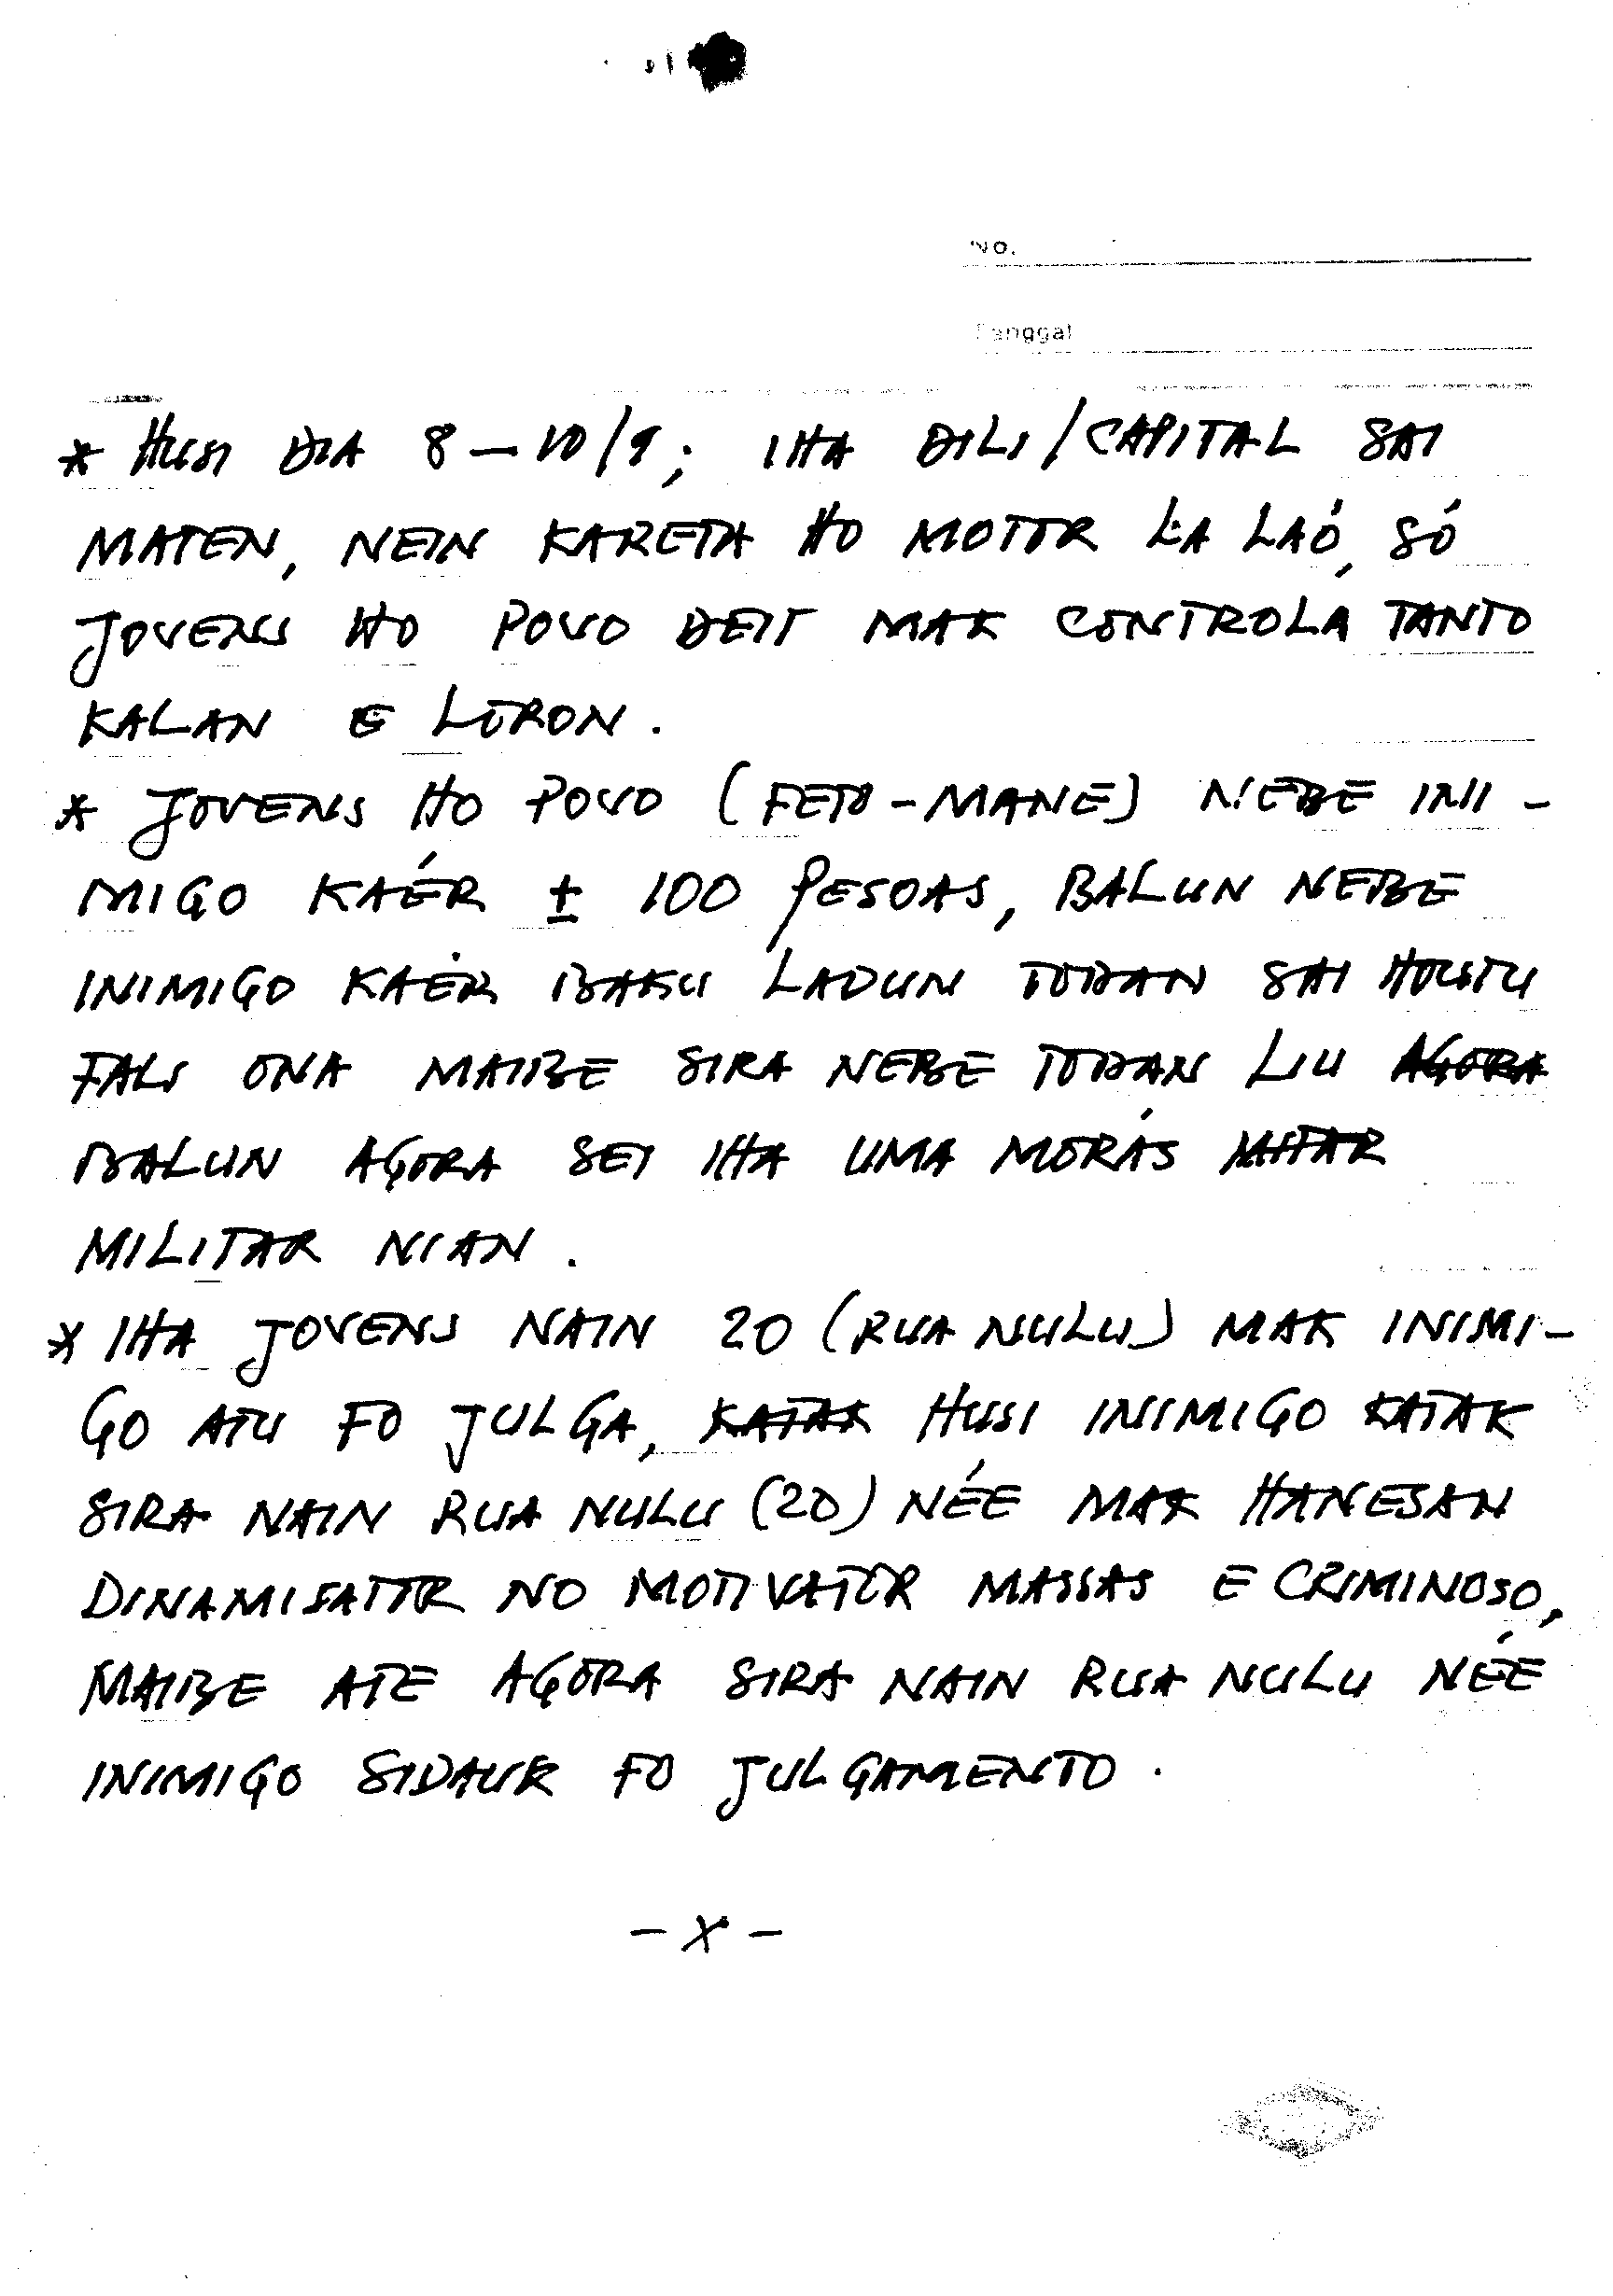 No.
Tanggal
* HUSI DIA 8-10/9; IHA DILI/CAPITAL SAI
MATEN, NEIN KARETA HO MOTOR LA LAÓ, SÓ
JOVENS HO POVO DEIT MAK CONTROLA TANTO
KALAN E LORON.
* JOVENS HO POVO (FETO-MANE) NEBE INI-
MIGO KAÉR ± 100 PESOAS, BALUN NEBE
INIMIGO KAÉR BAKU LADUN TODAN SAI HOUTU
FALI ONA MAIBE SIRA NEBE TODAN LIU AGORA
BALUN AGORA SEI IHA UMA MORÁS
MILITAR NIAN.
* IHA JOVENS NAIN 20 (RUA NULU) MAK INIMI-
GO ATU FO JULGA, KATAK HUSI INIMIGO KATAK
SIRA NAIN RUA NULU (20) NÉE MAK HANESAN
DINAMISATOR NO MOTIVATOR MASSAS E CRIMINOSO,
MAIBE ATE AGORA SIRA NAIN RUA NULU NÉE
INIMIGO SIDAUK FO JULGAMENTO.
- X -